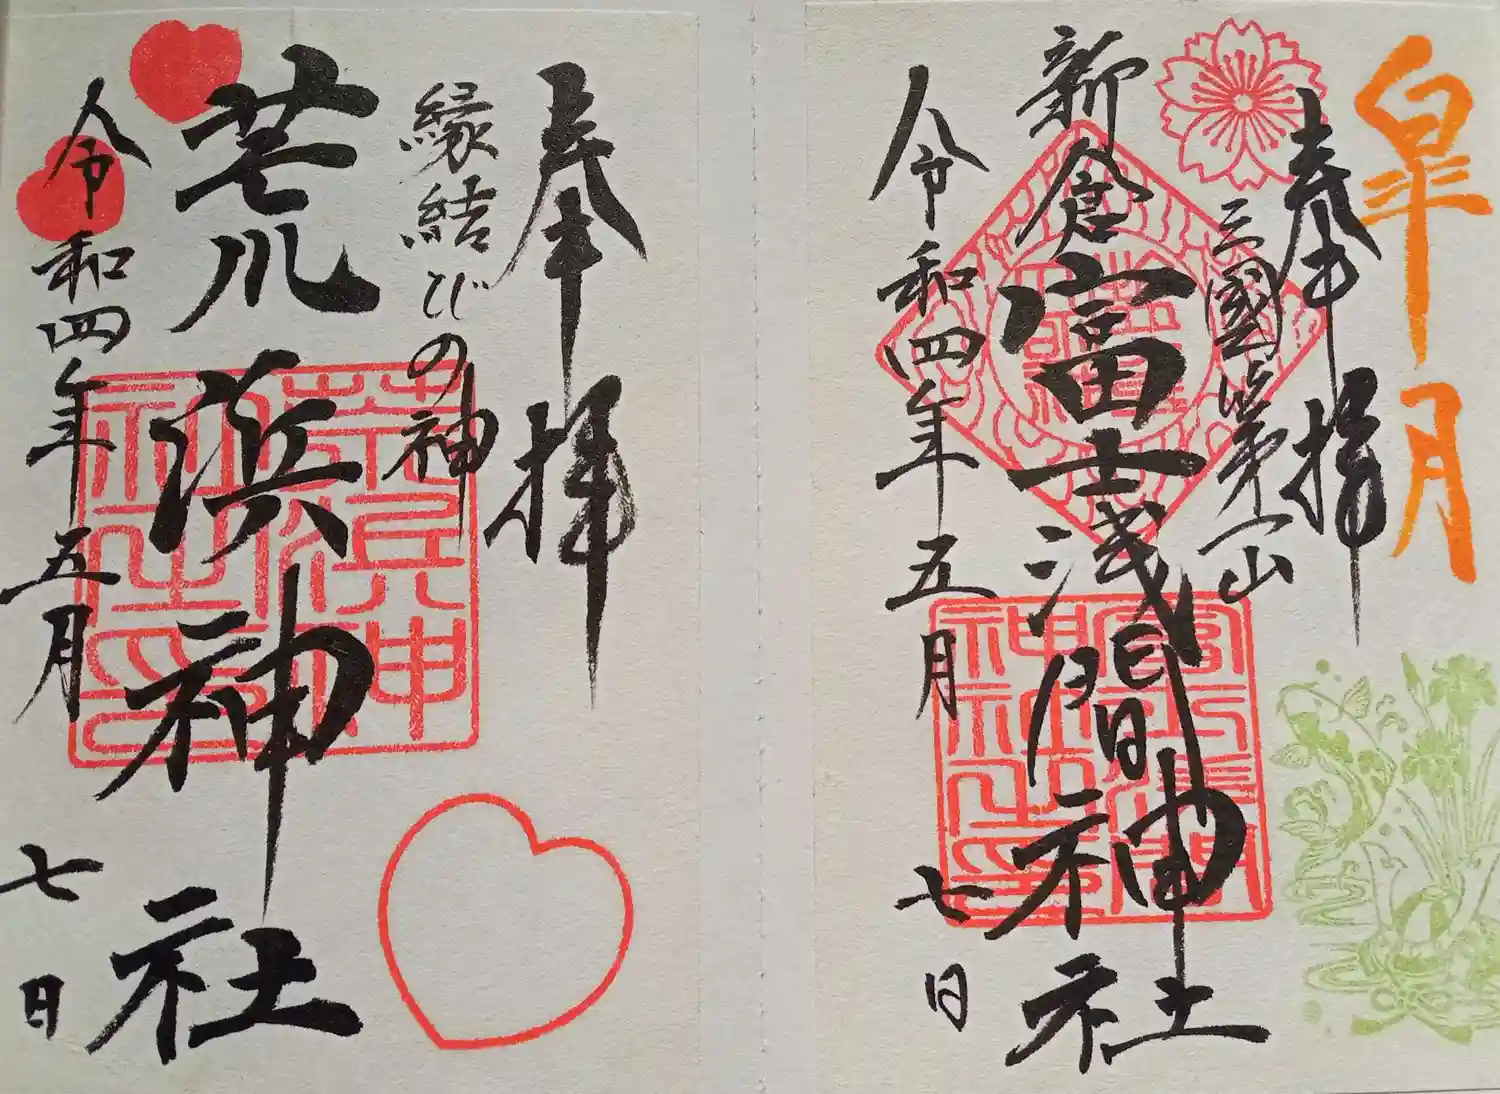 皐月
奉拝
三國第一山
新倉富士浅間神社
令和四年五月七日
奉拝
縁結びの神
荒浜神社
令和四年五月七日